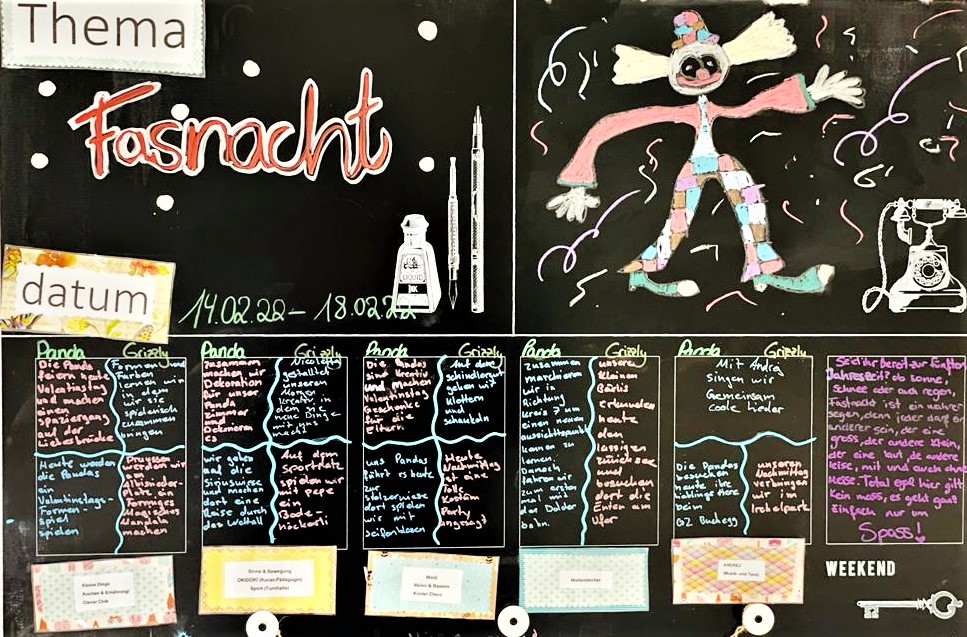 Thema
Fasnacht
LIQUID
INK
datum
14.02.22 – 18.02.22
Panda Grizzly
Die Pandas
feiern heute
Valentinstag
und machen
einen
Spaziergang
auf der
Liebesbrücke
Formen und
Farben
lernen wir
in dem
wir sie
spielerisch
zusammen
bringen
Heute werden
die Pandas
ein
Valentinstags-
Formen-
spiel
spielen
werden wir
machen
Panda Grizzly
Zusammen
machen wir
Dekoration
für unser
Panda
Zimmer
und
Dekorieren
es
gestaltet
unseren
in dem
wir gehen
auf die
Siriuswiese
und machen
dort eine
Reise durch
das Weltall
Auf dem
Sportplatz
spielen wir
mit Pepe
ein
Panda Grizzly
Die Pandas
sind kreativ
und machen
Valentinstag
Geschenke
für
Eltern
Auf dem
Schindlergut
gehen wir
klettern
und
schaukeln
uns Pandas
führt es heute
zur
Stolzewiese
dort spielen
wir mit
Seifenblasen
Heute
Nachmittag
ist eine
Kostüm
Party
angesagt
Panda Grizzly
Zusammen
marschieren
wir in
Richtung
Kreis 7 um
einen neuen
Aussichtspunkt
kennen zu
lernen
Danach
fahren wir
zum ersten
mal mit
der Dolder
bahn.
unsere
kleinen
Bärlis
erkunden
heute
den
Zürichsee
und
besuchen
dort die
Enten am
Ufer
Panda Grizzly
Mit André
singen wir
Gemeinsam
coole Lieder
Die Pandas
besuchen
heute ihr
lieblings Ort
beim
GZ Buchegg
unseren
Nachmittag
verbringen
wir im
Irchelpark
Seid ihr bereit zur fünften
Jahreszeit? ob Sonne,
Schnee oder auch regen,
Fastnacht ist ein wahrer
segen, denn jeder darf ein
anderer sein, der eine
gross, der andere klein,
der eine laut, de andere
leise, mit und auch ohne
Messe. Total egal hier gilt
kein muss, es geht ganz
Einfach nur um
Spass!
Kleine Dinge
Kochen & Ernährung/
Clever Club
Sinne & Bewegung
OKIDOKI (Kunst-Pädagogin)
Sport (Turnhalle)
Wald
Malen & Basteln
Kinder Disco
Weltentdecker
ANDREJ
(Musik- und Tanz)
WEEKEND